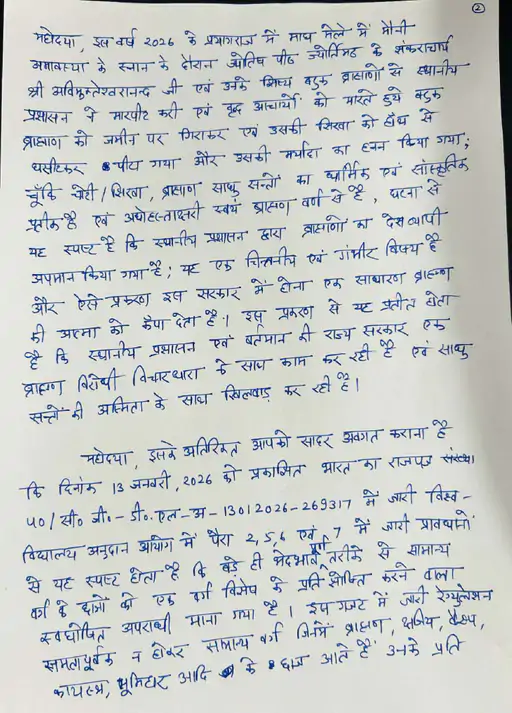 ②
महोदया, इस वर्ष 2026 के प्रयागराज में माघ मेले में मौनी
अमावस्या के स्नान के दौरान ज्योतिष पीठ ज्योतिर्मठ के शंकराचार्य
श्री अविमुक्तेश्वरानन्द जी एवं उनके शिष्य बटुक ब्राह्मणों से स्थानीय
प्रशासन ने मारपीट करी एवं वृद्ध आचार्यों को मारते हुये बटुक
ब्राह्मण को जमीन पर गिराकर एवं उसकी शिखा को हाँथ से
घसीटकर पीटा गया और उसकी मर्यादा का हनन किया गया;
चूँकि चोटी/शिखा, ब्राह्मण साधु सन्तों का धार्मिक एवं सांस्कृतिक
प्रतीक है एवं अधोहस्ताक्षरी स्वयं ब्राह्मण वर्ण से है, घटना से
यह स्पष्ट है कि स्थानीय प्रशासन द्वारा ब्राह्मणों का देशव्यापी
अपमान किया गया है; यह एक चिन्तनीय एवं गंभीर विषय है
और ऐसे प्रकरण इस सरकार में होना एक साधारण ब्राह्मण
की आत्मा को कँपा देता है। इस प्रकरण से यह प्रतीत होता
है कि स्थानीय प्रशासन एवं वर्तमान की राज्य सरकार एक
ब्राह्मण विरोधी विचारधारा के साथ काम कर रही है एवं साधु
सन्तों की अस्मिता के साथ खिलवाड़ कर रही है।
महोदया, इसके अतिरिक्त आपको सादर अवगत कराना है
कि दिनांक 13 जनवरी, 2026 को प्रकाशित भारत का राजपत्र संख्या
सी० जी०-डी०. एल-अ-13012026-269317 में जारी विश्व-
विद्यालय अनुदान आयोग में पैरा 2,5,6 एवं 7 में जारी प्रावधानों
से यह स्पष्ट होता है कि बड़े ही भेदभाव पूर्ण तरीके से सामान्य
वर्ग के छात्रों को एक वर्ग विशेष के प्रति शोषित करने वाला
स्वघोषित अपराधी माना गया है। इस गजट में जारी रेग्युलेशन
समतापूर्वक न होकर सामान्य वर्ग जिनमें ब्राह्मण, क्षत्रिय, वैश्य,
कायस्थ, भूमिहार आदि के छात्र आते हैं उनके प्रति